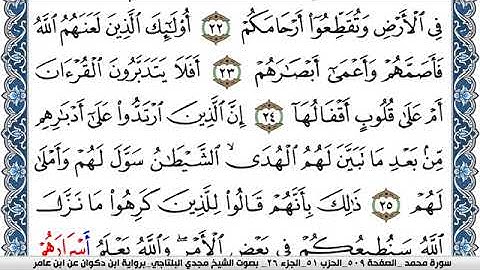 فِي الْأَرْضِ وَتُقَطِّعُوا أَرْحَامَكُمْ ٢٢ أُولَٰئِكَ الَّذِينَ لَعَنَهُمُ اللَّهُ
فَأَصَمَّهُمْ وَأَعْمَىٰ أَبْصَارَهُمْ ٢٣ أَفَلَا يَتَدَبَّرُونَ الْقُرْءَانَ
أَمْ عَلَىٰ قُلُوبٍ أَقْفَالُهَا ٢٤ إِنَّ الَّذِينَ ارْتَدُّوا عَلَىٰ أَدْبَارِهِم
مِّنْ بَعْدِ مَا تَبَيَّنَ لَهُمُ الْهُدَى الشَّيْطَانُ سَوَّلَ لَهُمْ وَأَمْلَىٰ
لَهُمْ ٢٥ ذَٰلِكَ بِأَنَّهُمْ قَالُوا لِلَّذِينَ كَرِهُوا مَا نَزَّلَ
اللَّهُ سَنُطِيعُكُمْ فِي بَعْضِ الْأَمْرِ وَاللَّهُ يَعْلَمُ أَسْرَارَهُمْ
سورة محمد_ الصفحة ٥٠٩_ الحزب ٥١_ الجزء ٢٦_ بصوت الشيخ مجدي البلتاجي_ برواية ابن ذكوان عن ابن عامر